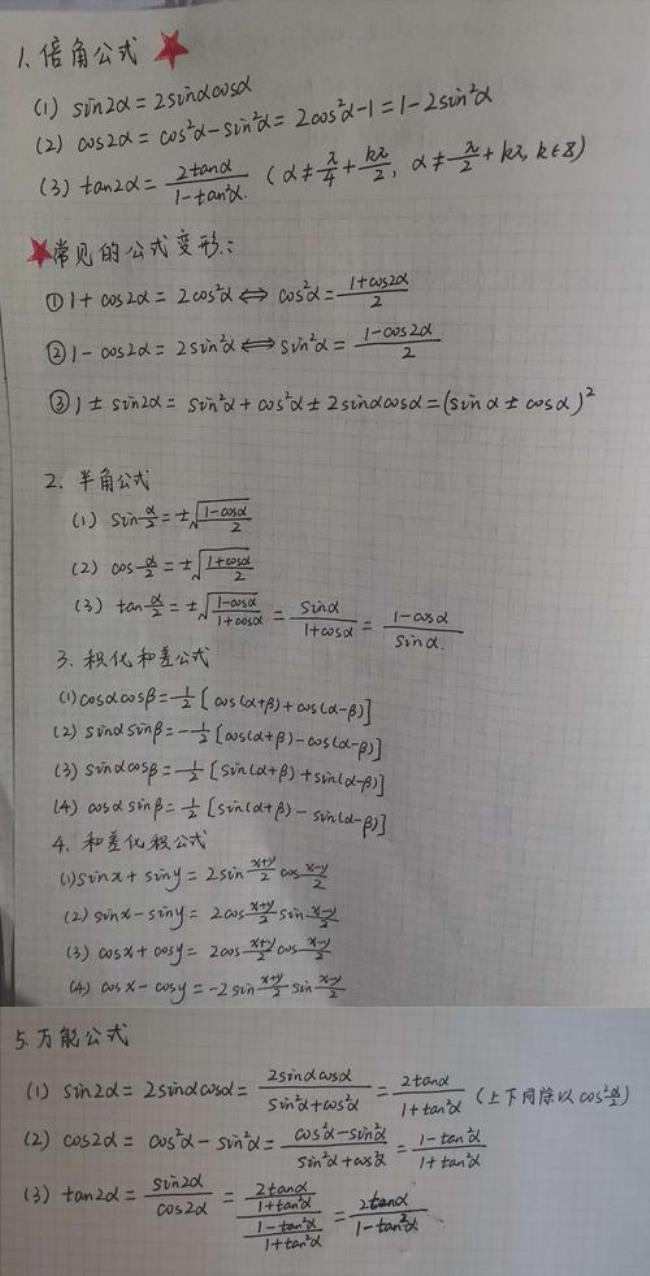 1. 倍角公式
(1) sin2α = 2sinαcosα
(2) cos2α = cos²α - sin²α = 2cos²α - 1 = 1 - 2sin²α
(3) tan2α = 2tanα/(1-tan²α) (α≠π/4 + kπ/2, α≠π/2 + kπ, k∈Z)
常见的公式变形:
① 1 + cos2α = 2cos²α ⇔ cos²α = (1+cos2α)/2
② 1 - cos2α = 2sin²α ⇔ sin²α = (1-cos2α)/2
③ 1 ± sin2α = sin²α + cos²α ± 2sinαcosα = (sinα ± cosα)²
2. 半角公式
(1) sin α/2 = ±√((1-cosα)/2)
(2) cos α/2 = ±√((1+cosα)/2)
(3) tan α/2 = ±√((1-cosα)/(1+cosα)) = sinα/(1+cosα) = (1-cosα)/sinα.
3. 积化和差公式
(1) cosαcosβ = 1/2 [cos(α+β) + cos(α-β)]
(2) sinαsinβ = -1/2 [cos(α+β) - cos(α-β)]
(3) sinαcosβ = 1/2 [sin(α+β) + sin(α-β)]
(4) cosαsinβ = 1/2 [sin(α+β) - sin(α-β)]
4. 和差化积公式
(1) sinx + siny = 2sin (x+y)/2 cos (x-y)/2
(2) sinx - siny = 2cos (x+y)/2 sin (x-y)/2
(3) cosx + cosy = 2cos (x+y)/2 cos (x-y)/2
(4) cosx - cosy = -2sin (x+y)/2 sin (x-y)/2
5. 万能公式
(1) sin2α = 2sinαcosα = 2sinαcosα/(sin²α+cos²α) = 2tanα/(1+tan²α) (上下同除以cos² α/2)
(2) cos2α = cos²α - sin²α = (cos²α-sin²α)/(sin²α+cos²α) = (1-tan²α)/(1+tan²α)
(3) tan2α = sin2α/cos2α = (2tanα/(1+tan²α))/((1-tan²α)/(1+tan²α)) = 2tanα/(1-tan²α)